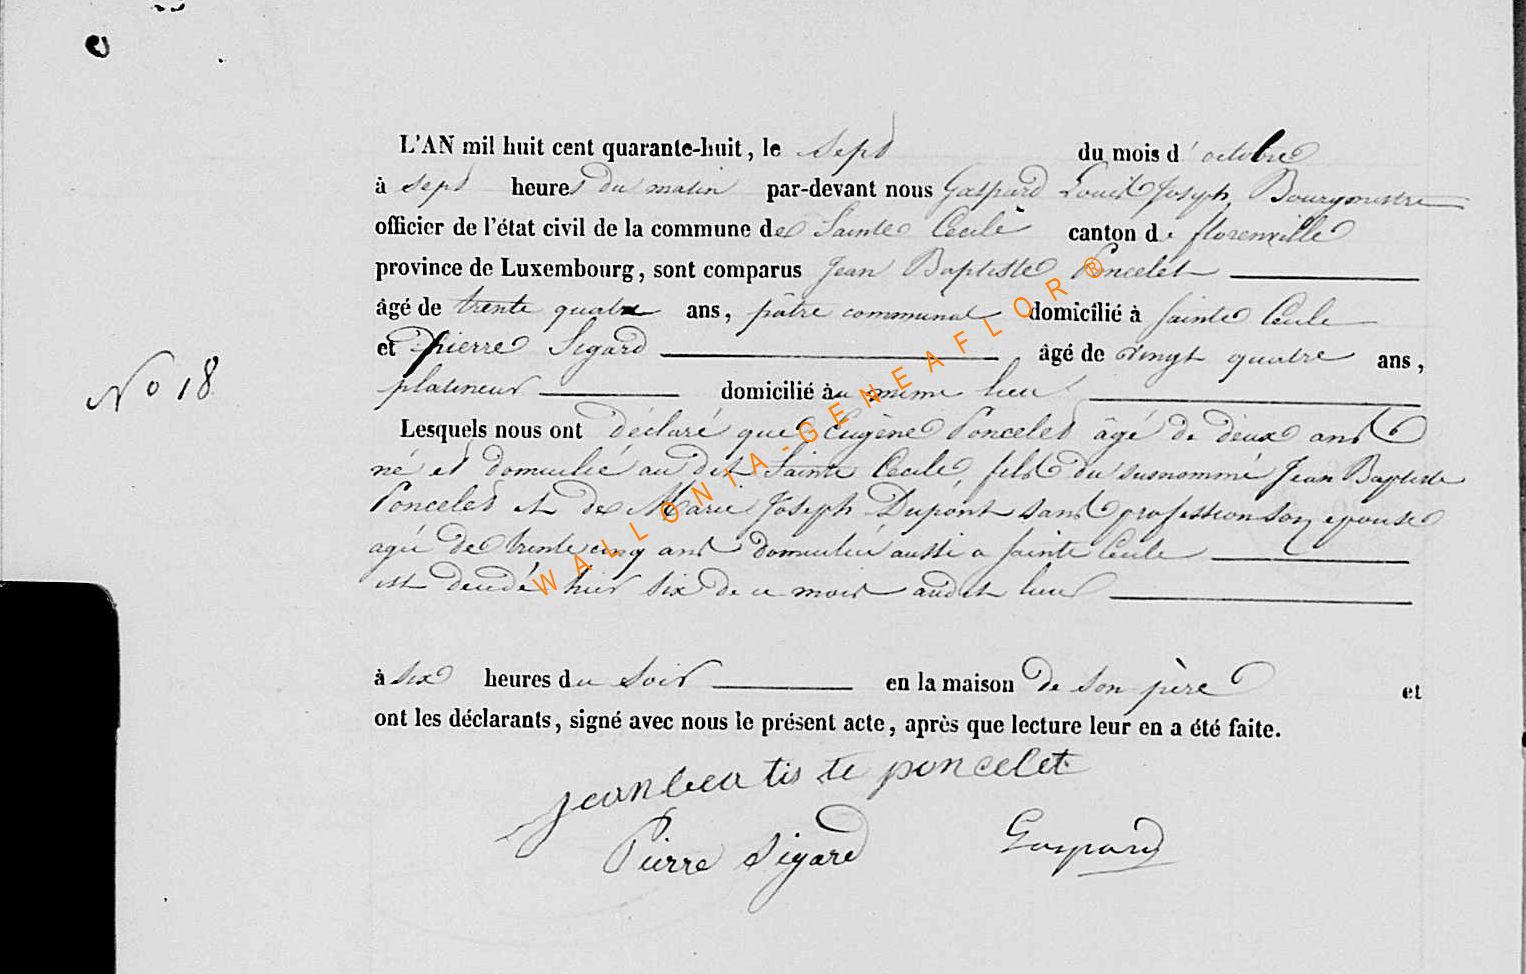 L'AN mil huit cent quarante-huit, le sept du mois d'octobre
à sept heures du matin par-devant nous Gaspard Louis Joseph, Bourgmestre
officier de l'état civil de la commune de Sainte Cecile canton de florenville
province de Luxembourg, sont comparus Jean Baptiste Poncelet
âgé de trente quatre ans, pâtre communal domicilié à Sainte Cecile
et Pierre Sigard âgé de vingt quatre ans,
No 18
platineur domicilié au même lieu
Lesquels nous ont déclaré que Eugène Poncelet âgé de deux ans
né et domicilié au dit Sainte Cecile, fils du susnommé Jean Baptiste
Poncelet et de Marie Joseph Dupont sans profession son épouse
agée de trente cinq ans domiciliée aussi a Sainte Cecile
est decedé hier six de ce mois audit lieu
à six heures du soir en la maison de son père et
ont les déclarants, signé avec nous le présent acte, après que lecture leur en a été faite.
jean batiste poncelet
Pierre Sigard Gaspard
WALLONIA-GENEAFLOR®